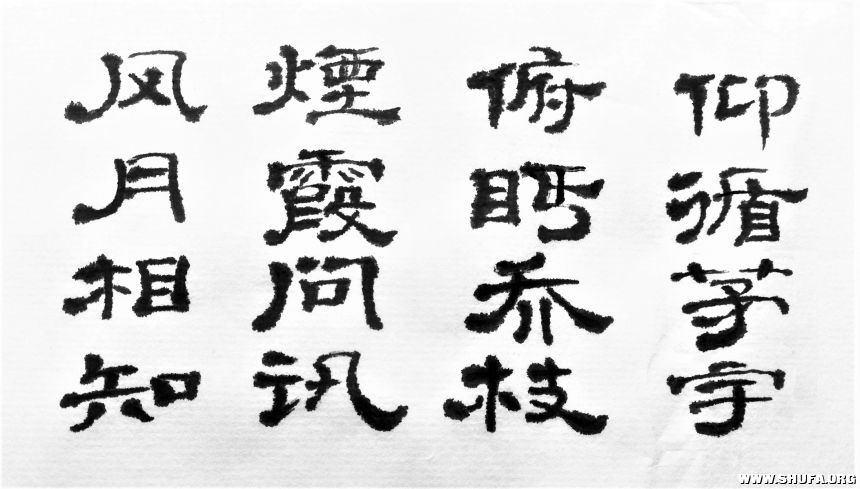 仰循茅宇
俯眄乔枝
煙霞问讯
风月相知
WWW.SHUFA.ORG